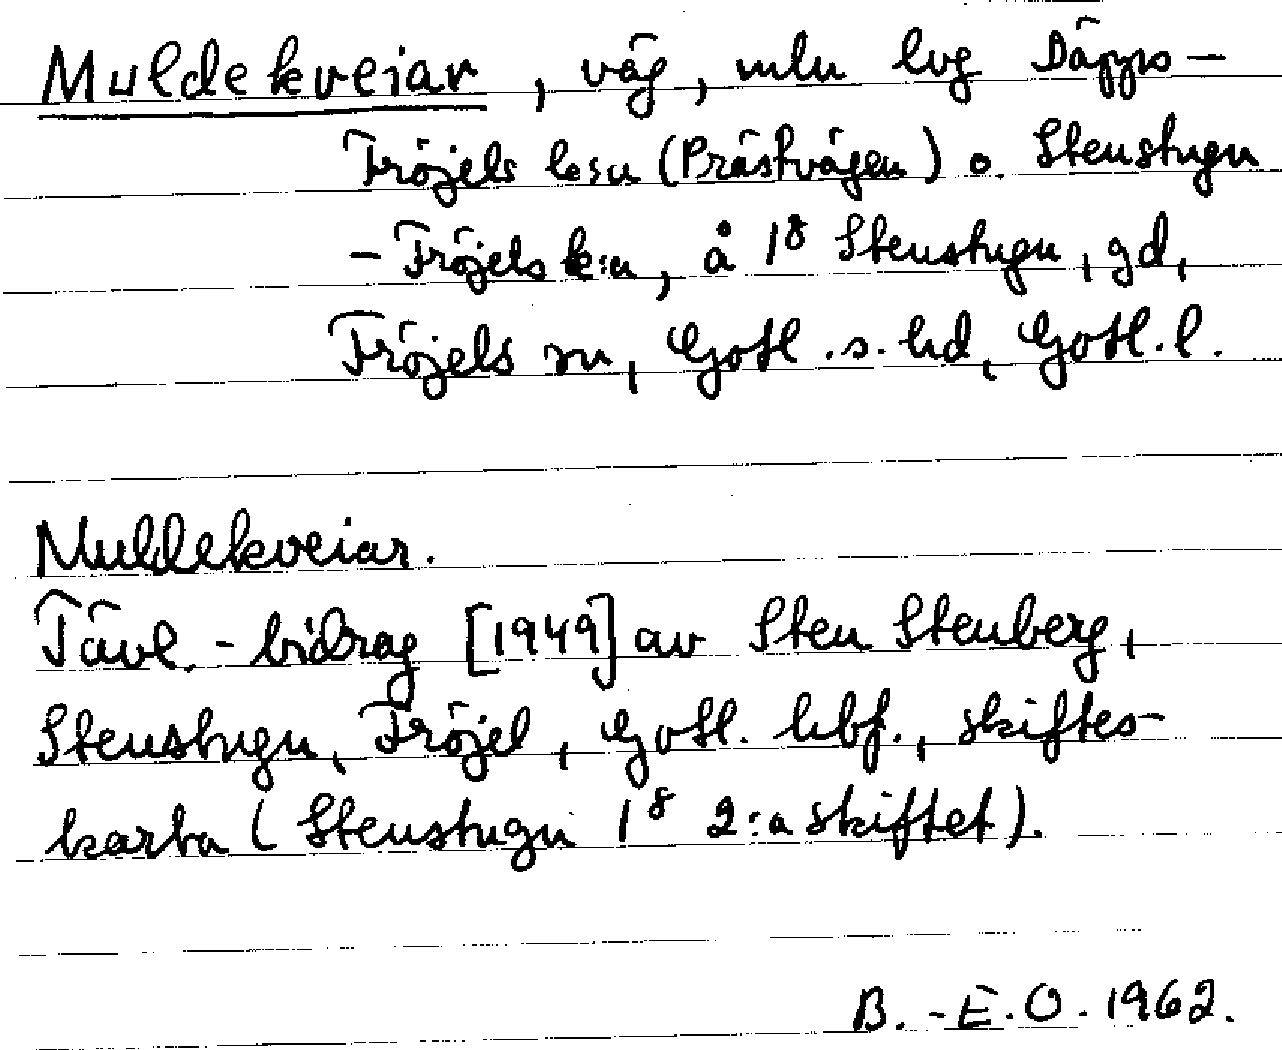 Muldekveiar, väg, mln lvg Däpps-
Fröjels                  (Prästvägen) o. Stenstugu
- Fröjels k:a, å 1⁸ Stenstugu, gd,
Fröjels sn, Gotl. s. hd, Gotl. l.
Muldekveiar.
Tävl.-bidrag [1949] av Sten Stenberg,
Stenstugu, Fröjel, Gotl. hbf., skiftes-
karta (Stenstugu 1⁸ 2:a skiftet).
B.-E.O. 1962.